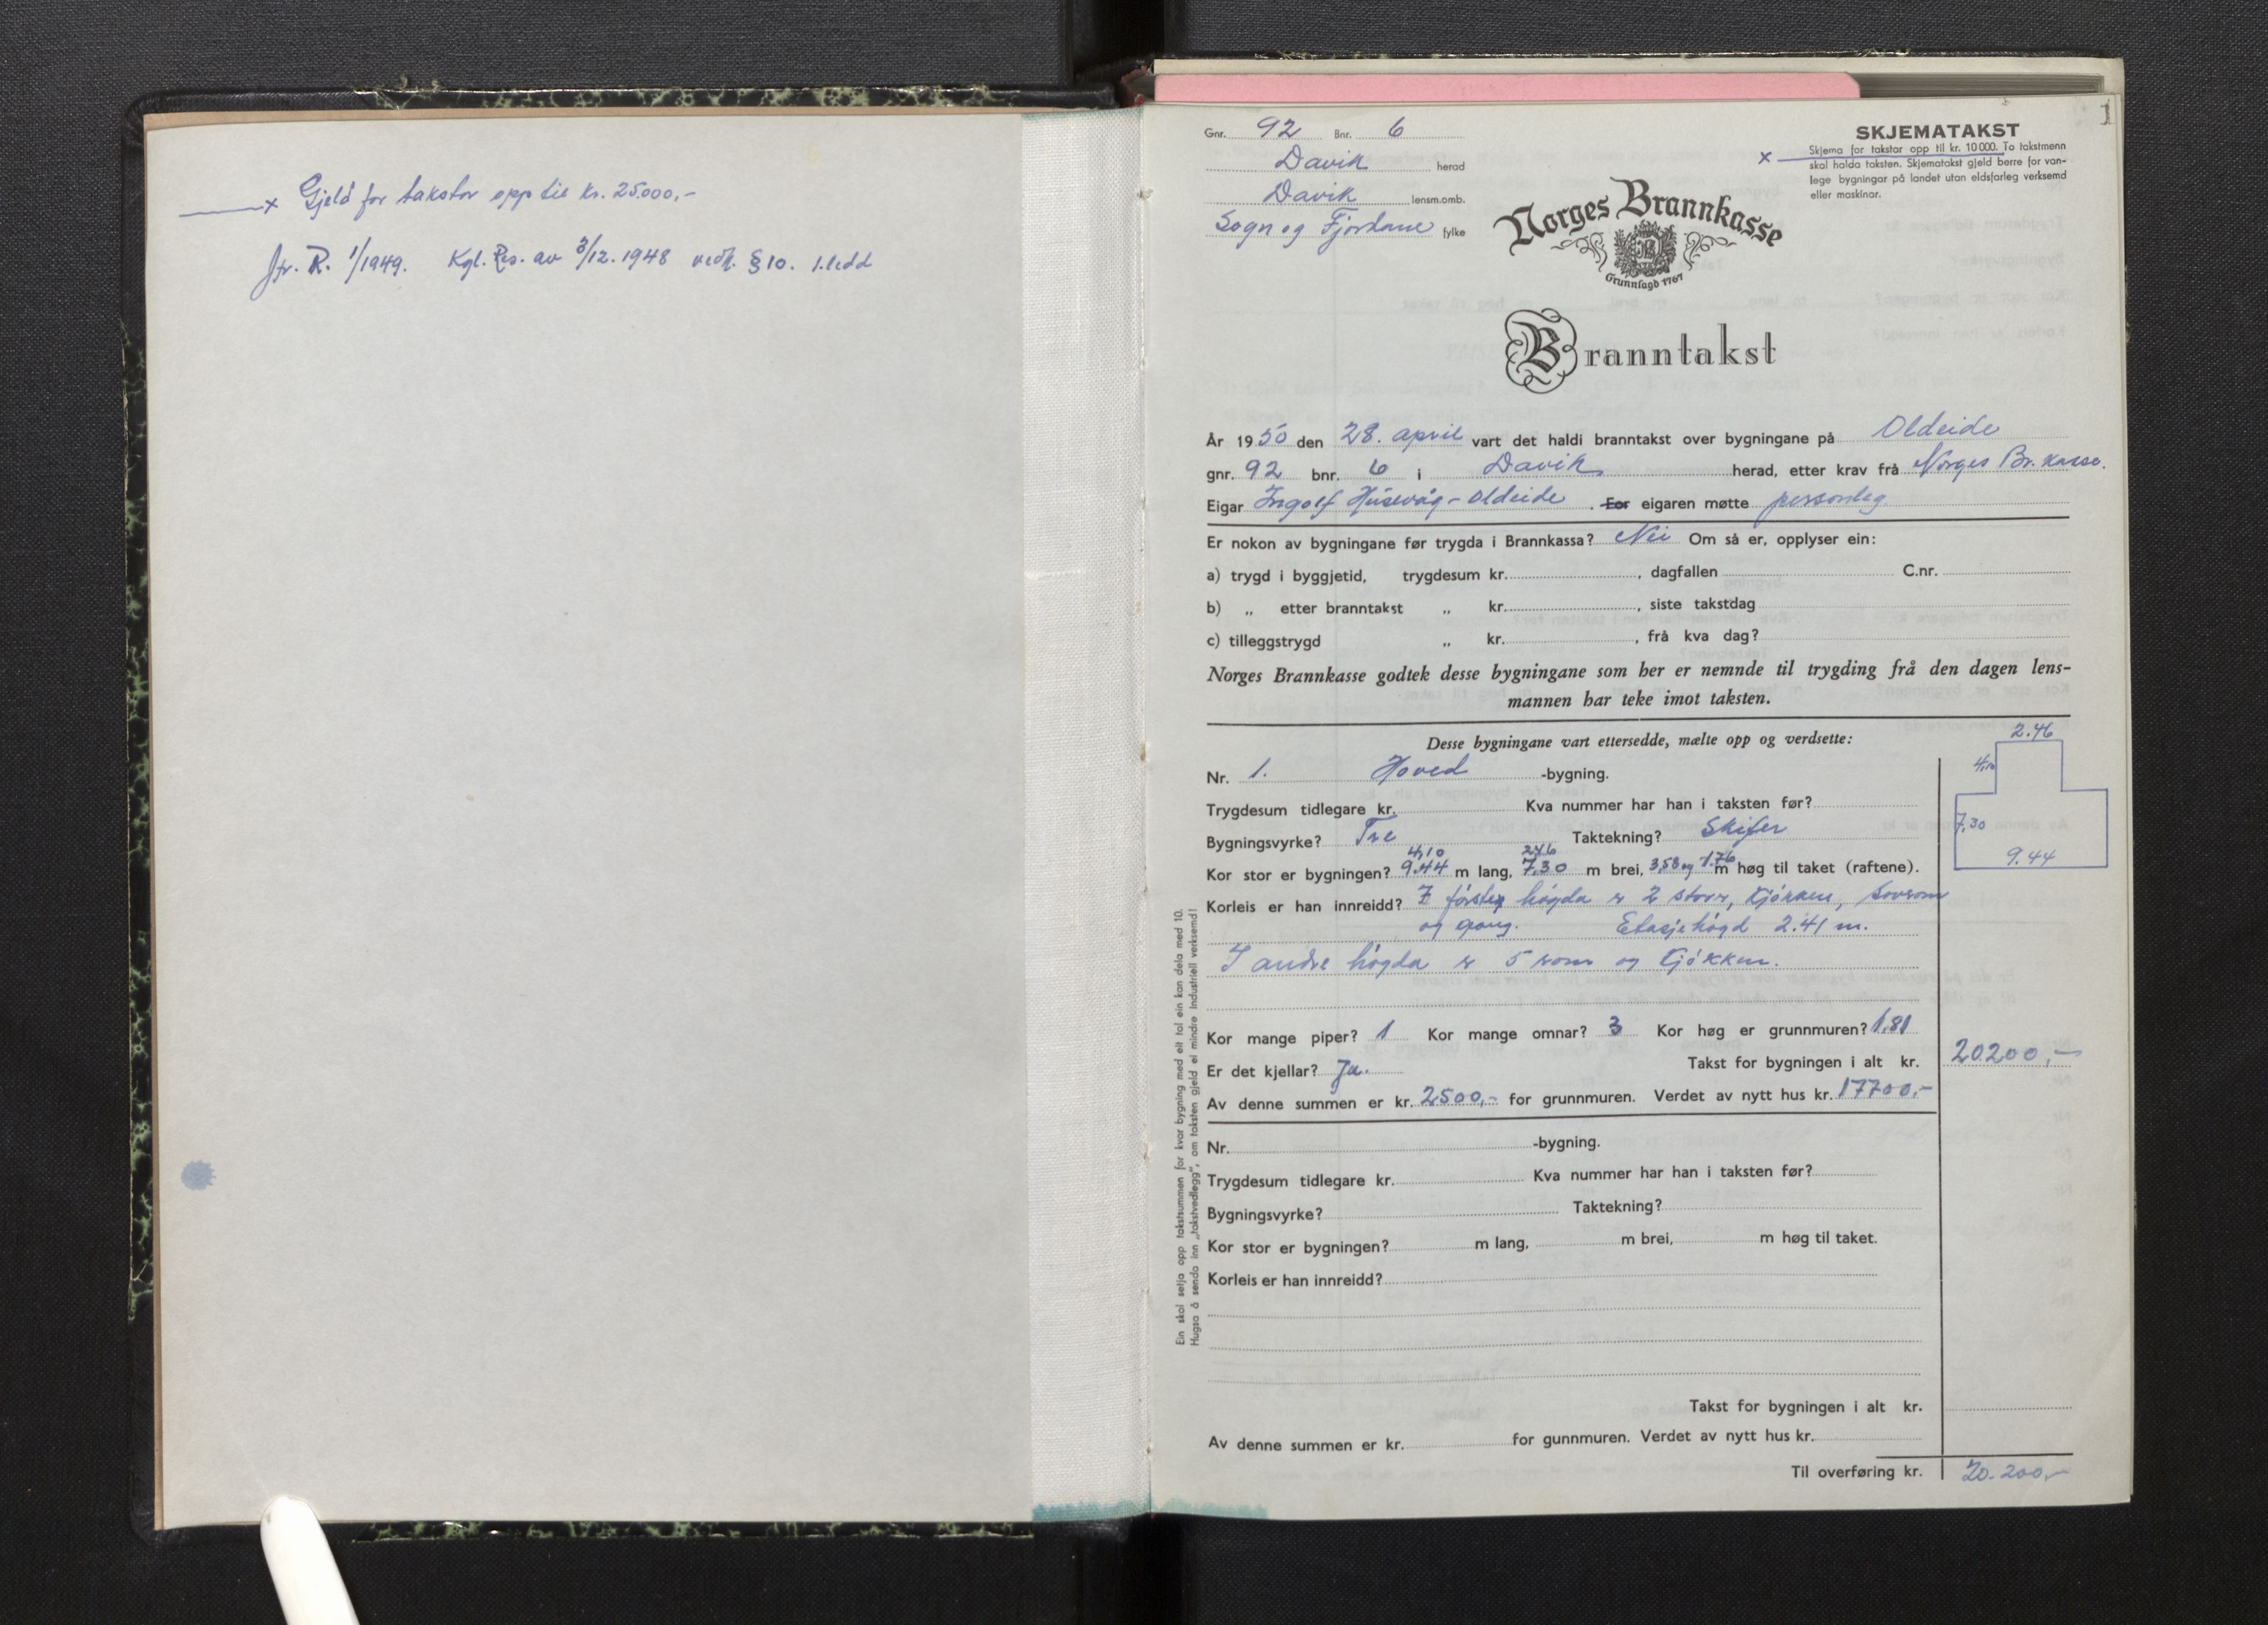 x Gjeld for takstar opp til kr. 25.000,-
jfr. R. 1/1949. Kgl. Res. av 3/12. 1948 vedk. § 10. 1. ledd
1
Gnr. 92 Bnr. 6
Davik herad
Davik lensm.omb.
Sogn og Fjordane fylke
SKJEMATAKST
x Skjema for takstar opp til kr. 10 000. To takstmenn
skal halda taksten. Skjematakst gjeld berre for van-
lege bygningar på landet utan eldsfarleg verksemd
eller maskinar.
Norges Brannkasse
Grunnlagd 1767
Branntakst
År 1950 den 28. april vart det haldi branntakst over bygningane på Oldeide
gnr. 92 bnr. 6 i Davik herad, etter krav frå Norges Br. kasse.
Eigar Ingolf Husevåg - Oldeide. For eigaren møtte personleg.
Er nokon av bygningane før trygda i Brannkassa? Nei Om så er, opplyser ein:
a) trygd i byggjetid, trygdesum kr. , dagfallen C.nr.
b) „ etter branntakst „ kr. , siste takstdag
c) tilleggstrygd „ kr. , frå kva dag?
Norges Brannkasse godtek desse bygningane som her er nemnde til trygding frå den dagen lens-
mannen har teke imot taksten.
Desse bygningane vart ettersedde, mælte opp og verdsette:
2.46
4,10
7,30
9.44
Nr. 1. Hoved -bygning.
Trygdesum tidlegare kr. Kva nummer har han i taksten før?
Bygningsvyrke? Tre Taktekning? Skifer
4,10 2,46
Kor stor er bygningen? 9.44 m lang, 7,30 m brei, 3,58 og 1.76 m høg til taket (raftene).
Korleis er han innreidd? I første høgda er 2 stover, kjøkken, soverom
og gang. Etasjehøgd 2.41 m.
I andre høgda er 5 rom og kjøkken.
Kor mange piper? 1 Kor mange omnar? 3 Kor høg er grunnmuren? 1.81
Er det kjellar? Ja. Takst for bygningen i alt kr. 20200,-
Av denne summen er kr. 2500,- for grunnmuren. Verdet av nytt hus kr. 17700.-
Nr. -bygning.
Trygdesum tidlegare kr. Kva nummer har han i taksten før?
Bygningsvyrke? Taktekning?
Kor stor er bygningen? m lang, m brei, m høg til taket.
Korleis er han innreidd?
Takst for bygningen i alt kr.
Av denne summen er kr. for gunnmuren. Verdet av nytt hus kr.
Til overføring kr. 20.200,-
Ein skal setja opp takstsummen for kvar bygning med eit tal ein kan dela med 10.
Hugsa å senda inn „takstvedlegg", om taksten gjeld ei mindre industriell verksemd!